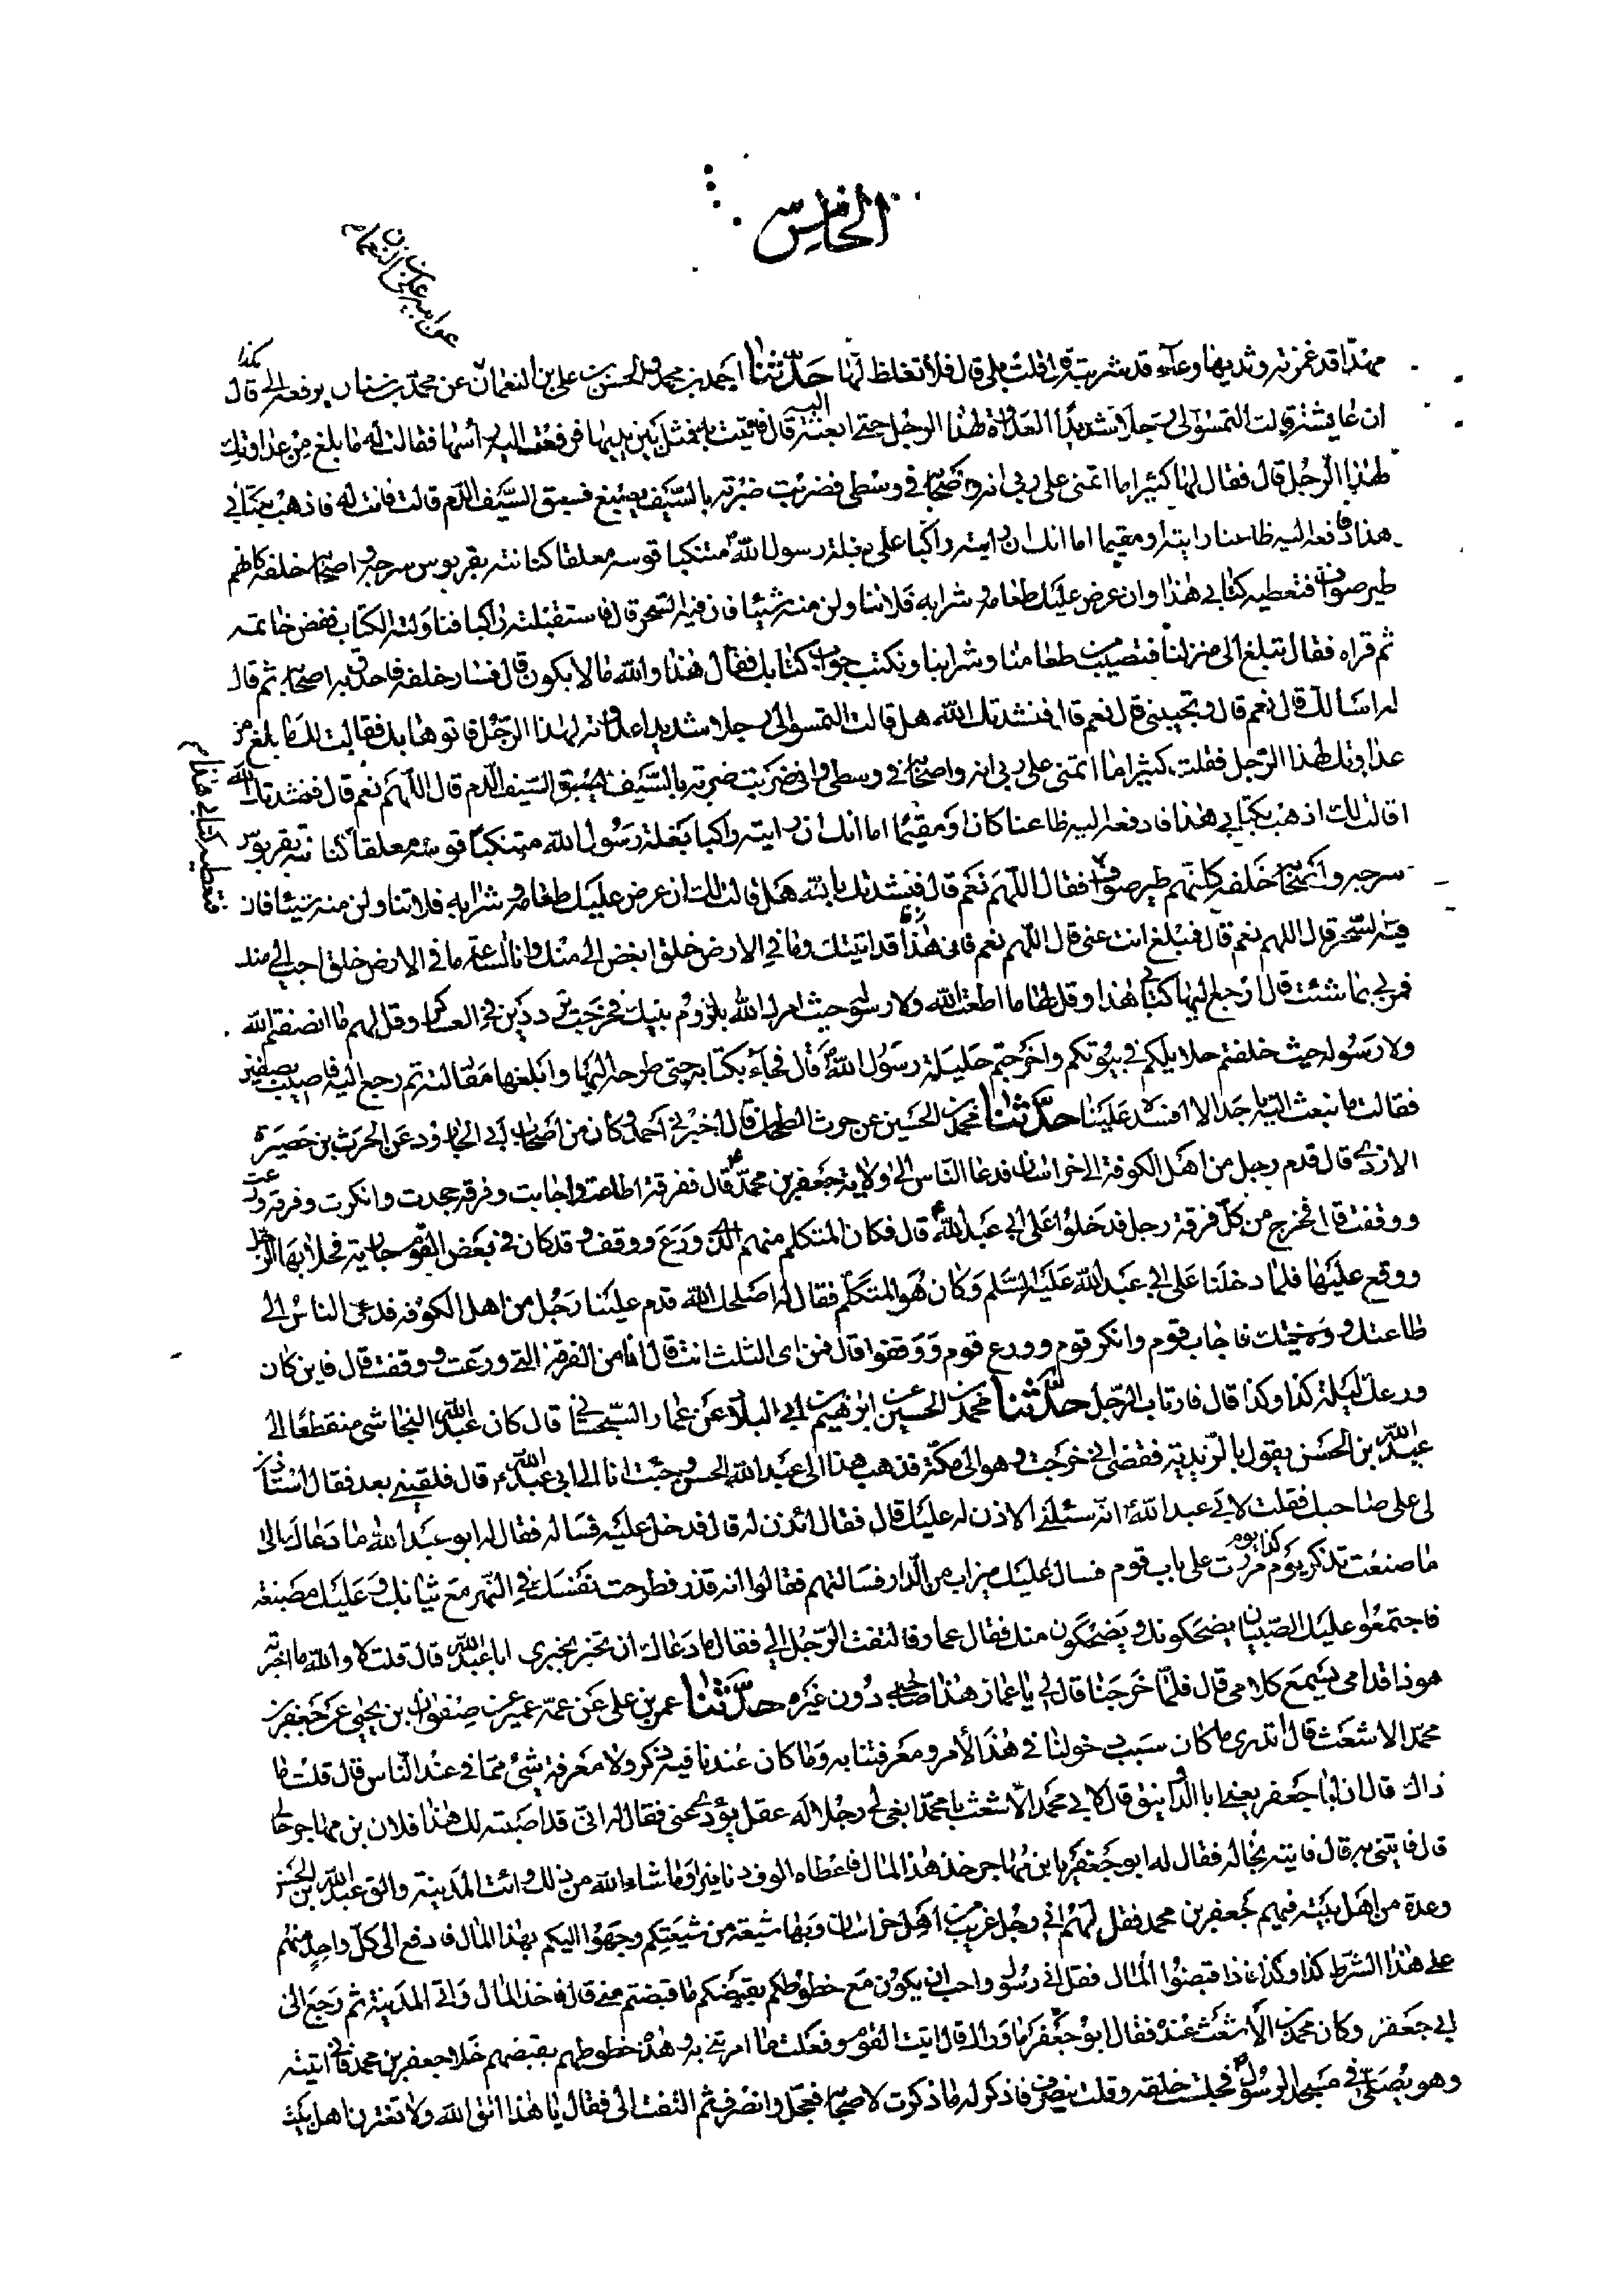 الخامس
عن ابيه عن علي بن النعمان
مهتما قد غمزته وثدييها وعا قد شربته قال قلت بلى قال فلا تغلظ لها حدّثنا احمد بن محمد والحسن بن علي بن النعمان عن محمد بن سنان يرفعه الى قال
ان عايشة قالت التمسوا لى رجلا شديد العداوة لهذا الرجل حتى ابعثه اليه قال فاتيت به فمثل بين يديها فرفعت اليه راسها فقالت له ما بلغ من عداوتك
لهذا الرجل قال فقال لها كثيرا ما اتمنى على ربي انه واصحابه في وسطي فضربت ضربة بالسيف يصبغ فسبق السيف الدم قالت فانت له فاذهب بكتابي
هذا فادفعه اليه ظاعنا رايته او مقيما اما انك ان رايته راكبا على بغلة رسول الله متنكبا قوسه معلقا كنانته بقربوس سرجه واصحابه خلفه كانهم
طير صواف فتعطيه كتابي هذا وان عرض عليك طعامه وشرابه فلا تناولن منه شيئا فان فيه السحر قال فاستقبلته راكبا فناولته الكتاب ففض خاتمه
ثم قراه فقال تبلغ الى منزلنا فتصيب من طعامنا وشرابنا ونكتب جواب كتابك فقال هذا والله ما لا يكون قال فسار خلفه فاحدق به اصحابه ثم قال
له اسالك قال نعم قال وتجيبني قال نعم قال فنشدتك الله هل قالت التمسوا لى رجلا شديدا عداوته لهذا الرجل فاتوها بك فقالت لك ما بلغ من
عداوتك لهذا الرجل فقلت كثيرا ما اتمنى على ربي انه واصحابه في وسطي واني ضربت ضربة بالسيف يسبق السيف الدم قال اللهم نعم قال فنشدتك الله
اقالت لك اذهب بكتابي هذا فادفعه اليه ظاعنا كان او مقيما اما انك ان رايته راكبا بغلة رسول الله متنكبا قوسه معلقا كنانته بقربوس
سرجه واصحابه خلفه كانهم طير صواف فقال اللهم نعم قال فنشدتك بالله هل قالت لك ان عرض عليك طعامه وشرابه فلا تناولن منه شيئا فان
فتعطيه كتابي هذا
فيه السحر قال اللهم نعم قال فمبلغ انت عني قال اللهم نعم فاني قد اتيتك وما في الارض خلق ابغض الى منك وانا الساعة ما في الارض خلق احب الى منك
فمرني بما شئت قال ارجع اليها بكتابي هذا وقل لها ما اطعت الله ولا رسوله حيث امرك الله بلزوم بيتك فخرجت ترددين في العساكر وقل لهم ما انصفتم الله
ولا رسوله حيث خلفتم حلايلكم في بيوتكم واخرجتم حليلة رسول الله قال فجاء بكتابه حتى طرحه اليها وابلغها مقالته ثم رجع اليه فاصيب بصفين
فقالت ما نبعث اليه باحد الا افسده علينا حدّثنا محمد بن الحسين عن حرث الطحان قال اخبرني احمد وكان من اصحاب ابي الجارود عن الحرث بن حصيرة
الازدى قال قدم رجل من اهل الكوفة الى خراسان فدعا الناس الى ولاية جعفر بن محمد قال ففرقة اطاعت واجابت وفرقة جحدت وانكرت وفرقة ورعت
ووقفت قال فخرج من كل فرقة رجل فدخلوا على ابي عبد الله قال فكان المتكلم منهم الذي ورع ووقف وقد كان في بعض القوم جارية فخلا بها الرجل
ووقع عليها فلما دخلنا على ابي عبد الله عليه السلم وكان هو المتكلم فقال له اصلحك الله قدم علينا رجل من اهل الكوفة فدعى الناس الى
طاعتك وولايتك فاجاب قوم وانكر قوم وورع قوم ووقفوا قال فمن اى الثلث انت قال انا من الفرقة التي ورعت ووقفت قال فاين كان
ورعك ليلة كذا وكذا قال فارتاب الرجل حدّثنا محمد بن الحسين عن ابرهيم بن ابي البلاد عن عمار السجستاني قال كان عبد الله النجاشي منقطعا الى
عبد الله بن الحسن يقول بالزيدية فقضى اني خرجت وهو الى مكة فذهب هذا الى عبد الله الحسن وجئت انا الى ابي عبد الله قال فلقيني بعد فقال استاذن
لى على صاحبك فقلت لابي عبد الله انه سئلني الاذن له عليك قال فقال ائذن له قال فدخل عليه فساله فقال له ابو عبد الله ما دعاك الى
ما صنعت تذكر يوم كذا يوم مررت على باب قوم فسال عليك ميزاب من الدار فسالتهم فقالوا انه قذر فطرحت نفسك في النهر مع ثيابك وعليك مصبغة
فاجتمعوا عليك الصبيان يضحكونك ويضحكون منك فقال عمار فالتفت الرجل الى فقال ما دعاك ان تخبر بخبرى ابا عبد الله قال قلت لا والله ما اخبرته
هو ذا قدامى يسمع كلامى قال فلما خرجنا قال لى يا عمار هذا صاحبى دون غيره حدّثنا عمر بن على عن عمه عمير عن صفوان بن يحيى عن جعفر بن
محمد الاشعث قال اتدرى ما كان سبب دخولنا في هذا الامر ومعرفتنا به وما كان عندنا فيه ذكر ولا معرفة شئ مما في عند الناس قال قلت ما
ذاك قال ان ابا جعفر يعنى ابا الدوانيق قال لابي محمد الاشعث يا محمد ابغ لي رجلا له عقل يؤدى عني فقال له اني قد اصبته لك هذا فلان بن مهاجر خالى
قال فاتني به قال فاتيته بخاله فقال له ابو جعفر يا بن مهاجر خذ هذا المال فاعطاه الوف دنانير او ما شاء الله من ذلك وائت المدينة والق عبد الله بن الحسن
وعدة من اهل بيته فيهم جعفر بن محمد فقل لهم اني رجل غريب من اهل خراسان وبها شيعة من شيعتكم وجهوا اليكم بهذا المال فادفع الى كل واحد منهم
على هذا الشرط كذا وكذا فاذا قبضوا المال فقل اني رسول واحب ان يكون مع خطوطكم بقبضكم ما قبضتم مني قال فاخذ المال واتى المدينة ثم رجع الى
ابي جعفر وكان محمد بن الاشعث عنده فقال ابو جعفر ما وراك قال اتيت القوم وفعلت ما امرتني به وهذه خطوطهم بقبضهم خلا جعفر بن محمد فاني اتيته
وهو يصلي في مسجد الرسول فجلست خلفه وقلت ينصرف فاذكر له ما ذكرت لاصحابه فعجل وانصرف ثم التفت الى فقال يا هذا اتق الله ولا تغترن اهل بيت